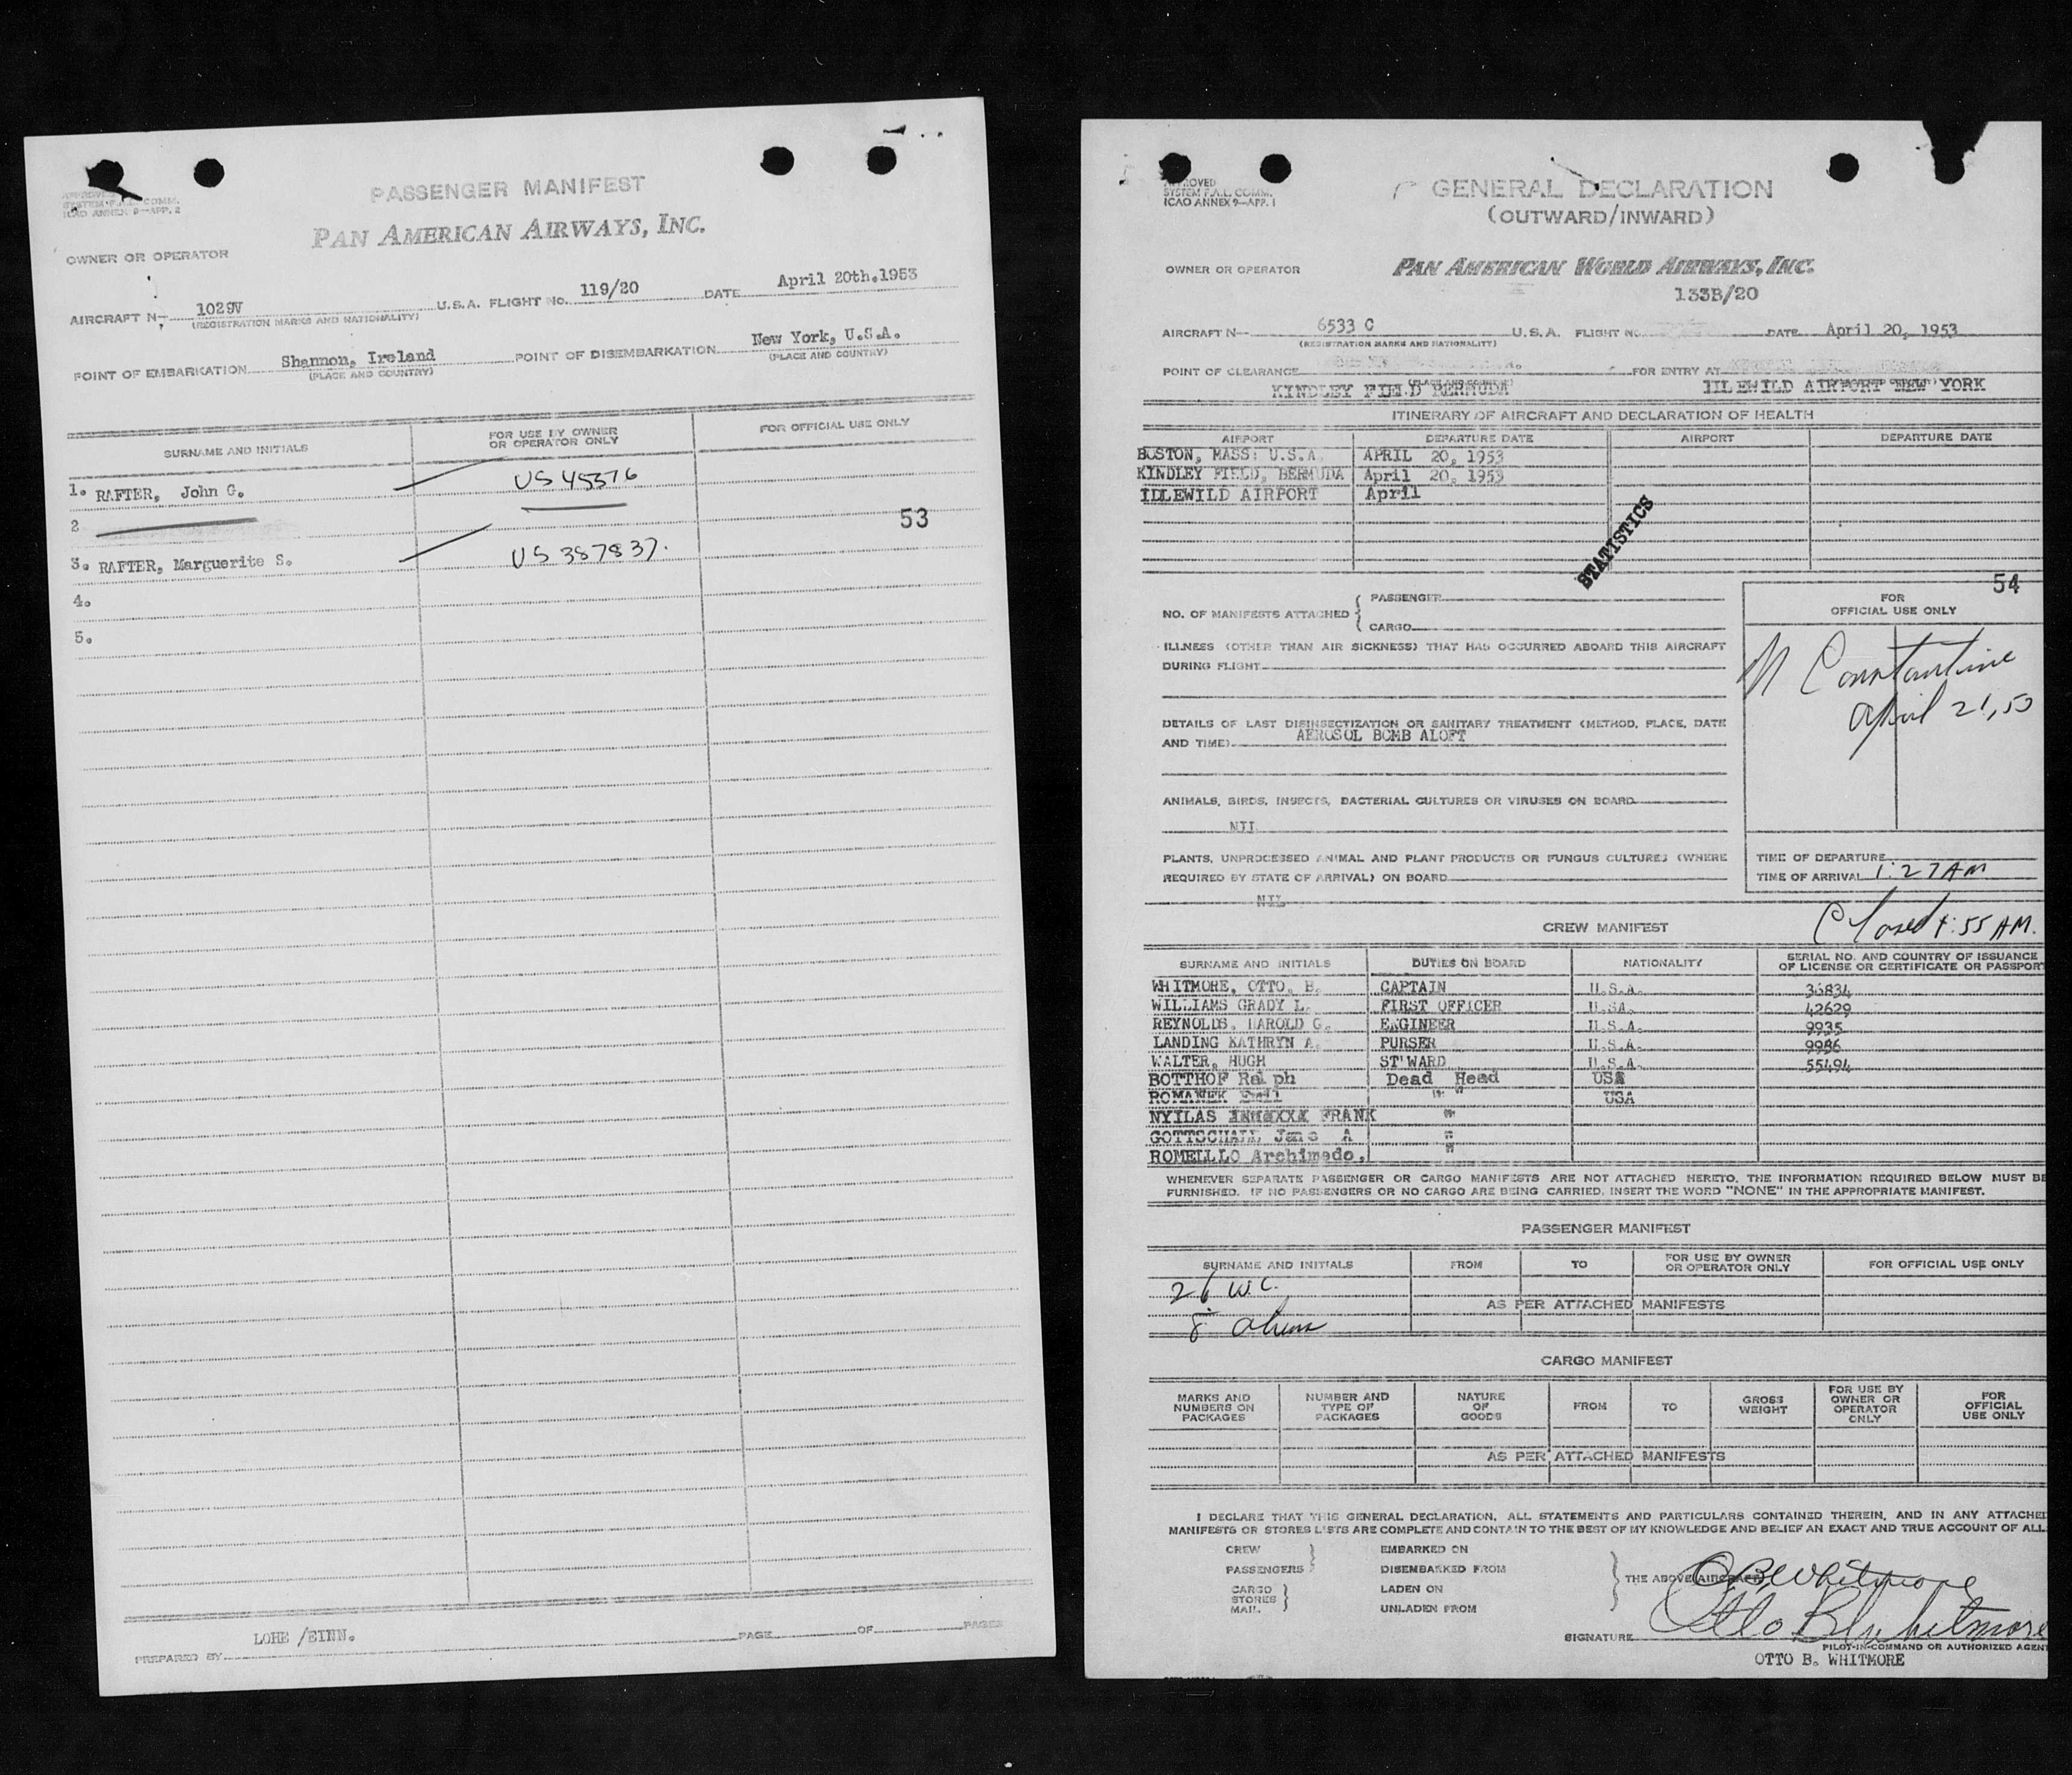 APPROVED
SYSTEM F.A.L. COMM.
ICAO ANNEX 9—APP. 2
PASSENGER MANIFEST
PAN AMERICAN AIRWAYS, INC.
OWNER OR OPERATOR
AIRCRAFT N- 1029V U.S.A. FLIGHT No. 119/20 DATE April 20th.1953
(REGISTRATION MARKS AND NATIONALITY)
POINT OF EMBARKATION Shannon, Ireland POINT OF DISEMBARKATION New York, U.S.A.
(PLACE AND COUNTRY) (PLACE AND COUNTRY)
SURNAME AND INITIALS FOR USE BY OWNER OR OPERATOR ONLY FOR OFFICIAL USE ONLY
1. RAFTER, John G. US 45376
2 53
3. RAFTER, Marguerite S. US 387837.
4.
5.
LOHE /EINN.
PREPARED BY PAGE OF PAGES
APPROVED
SYSTEM F.A.L. COMM.
ICAO ANNEX 9—APP. 1
GENERAL DECLARATION
(OUTWARD/INWARD)
OWNER OR OPERATOR PAN AMERICAN WORLD AIRWAYS, INC.
133B/20
AIRCRAFT N- 6533 C U.S.A. FLIGHT No. DATE April 20, 1953
(REGISTRATION MARKS AND NATIONALITY)
POINT OF CLEARANCE FOR ENTRY AT
KINDLEY FIELD BERMUDA IDLEWILD AIRPORT NEW YORK
ITINERARY OF AIRCRAFT AND DECLARATION OF HEALTH
AIRPORT DEPARTURE DATE AIRPORT DEPARTURE DATE
BOSTON, MASS: U.S.A. APRIL 20, 1953
KINDLEY FIELD, BERMUDA April 20, 1953
IDLEWILD AIRPORT April
STATISTICS
54
NO. OF MANIFESTS ATTACHED { PASSENGER
CARGO
FOR
OFFICIAL USE ONLY
ILLNESS (OTHER THAN AIR SICKNESS) THAT HAS OCCURRED ABOARD THIS AIRCRAFT
DURING FLIGHT
M Constantine
April 21, 53
DETAILS OF LAST DISINSECTIZATION OR SANITARY TREATMENT (METHOD, PLACE, DATE
AND TIME) AEROSOL BOMB ALOFT
ANIMALS, BIRDS, INSECTS, BACTERIAL CULTURES OR VIRUSES ON BOARD
NIL
PLANTS, UNPROCESSED ANIMAL AND PLANT PRODUCTS OR FUNGUS CULTURES (WHERE
REQUIRED BY STATE OF ARRIVAL) ON BOARD
NIL
TIME OF DEPARTURE
TIME OF ARRIVAL 1:27 AM
Closed 1:55 AM.
CREW MANIFEST
SURNAME AND INITIALS DUTIES ON BOARD NATIONALITY SERIAL NO. AND COUNTRY OF ISSUANCE OF LICENSE OR CERTIFICATE OR PASSPORT
WHITMORE, OTTO, B. CAPTAIN U.S.A. 36834
WILLIAMS GRADY L. FIRST OFFICER U.SA. 42629
REYNOLDS, HAROLD G. ENGINEER U.S.A. 9935
LANDING KATHRYN A. PURSER U.S.A. 9986
WALTER, HUGH ST'WARD U.S.A. 55494
BOTTHOF Ralph Dead Head USA
ROMANEK Emil " " USA
NYILAS FRANK "
GOTTSCHALL Jane A "
ROMELLLO Archimedo. "
WHENEVER SEPARATE PASSENGER OR CARGO MANIFESTS ARE NOT ATTACHED HERETO, THE INFORMATION REQUIRED BELOW MUST BE
FURNISHED. IF NO PASSENGERS OR NO CARGO ARE BEING CARRIED, INSERT THE WORD "NONE" IN THE APPROPRIATE MANIFEST.
PASSENGER MANIFEST
SURNAME AND INITIALS FROM TO FOR USE BY OWNER OR OPERATOR ONLY FOR OFFICIAL USE ONLY
26 W.C.
AS PER ATTACHED MANIFESTS
8 aliens
CARGO MANIFEST
MARKS AND NUMBERS ON PACKAGES NUMBER AND TYPE OF PACKAGES NATURE OF GOODS FROM TO GROSS WEIGHT FOR USE BY OWNER OR OPERATOR ONLY FOR OFFICIAL USE ONLY
AS PER ATTACHED MANIFESTS
I DECLARE THAT THIS GENERAL DECLARATION, ALL STATEMENTS AND PARTICULARS CONTAINED THEREIN, AND IN ANY ATTACHED
MANIFESTS OR STORES LISTS ARE COMPLETE AND CONTAIN TO THE BEST OF MY KNOWLEDGE AND BELIEF AN EXACT AND TRUE ACCOUNT OF ALL
CREW EMBARKED ON
PASSENGERS DISEMBARKED FROM
CARGO LADEN ON
STORES
MAIL UNLADEN FROM
THE ABOVE AIRCRAFT
O B Whitmore
Otto B Whitmore
SIGNATURE
PILOT-IN-COMMAND OR AUTHORIZED AGENT
OTTO B. WHITMORE